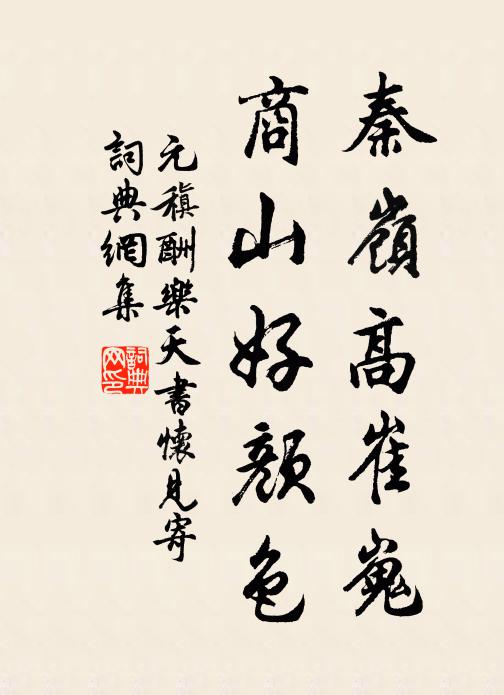 秦嶺高崔嵬
商山好顏色
元稹酬樂天書懷見寄
詞典網集
詞典网印